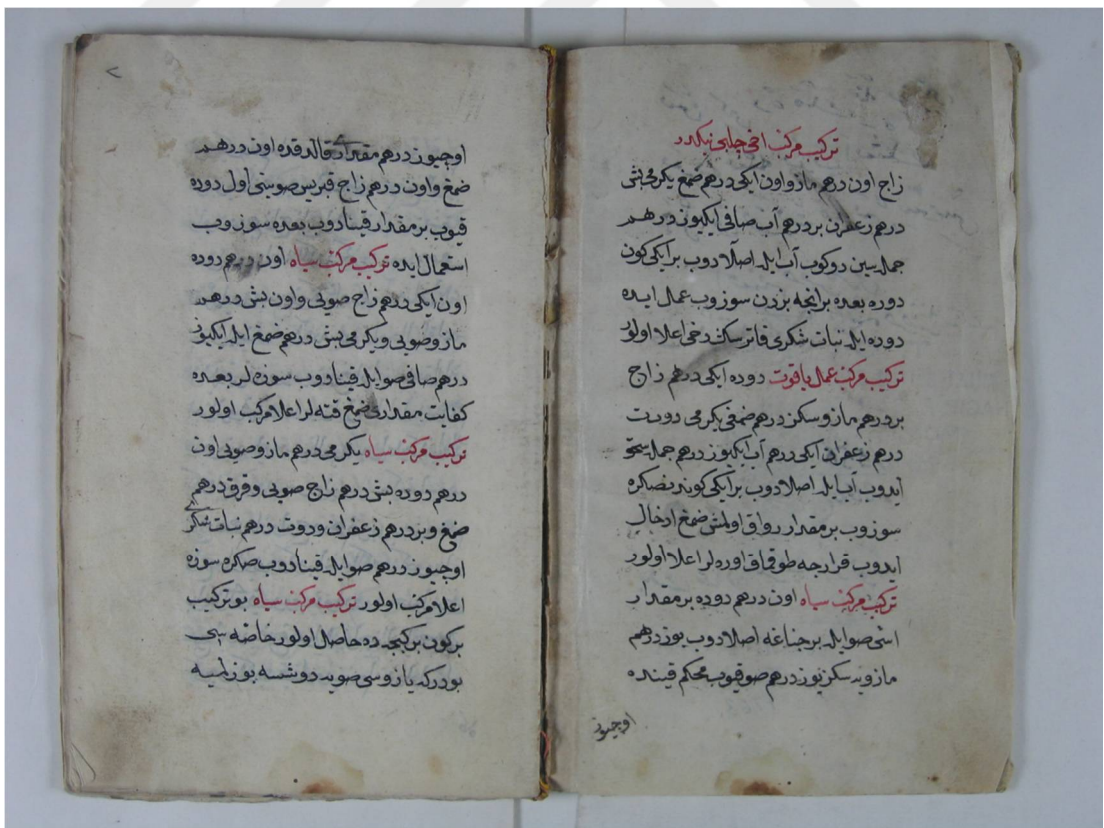 تركيب مركب اخى چلبى نيكدر
زاج اون درهم مازو اون ايكى درهم صمغ يكرمى بش
درهم زعفران بر درهم آب صافى ايكيوز درهم
جمله سين دوكوب آب ايله اصلادوب بر ايكى كون
دوره بعده بر اينجه بزدن سوزوب عمل ايده
دوده ايله نبات شكرى قاترسك دخى اعلا اولور
تركيب مركب عمل ياقوت دوده ايكى درهم زاج
بر درهم مازو سكز درهم صمغى يكرمى دورت
درهم زعفران ايكى درهم آب ايكيوز درهم جمله سحق
ايدوب آب ايله اصلادوب بر ايكى كوندنصكره
سوزوب بر مقدار رواق اولمش صمغ ادخال
ايدوب قرارجه طوقماق اوره لر اعلا اولور
تركيب مركب سياه اون درهم دوده بر مقدار
اسى صو ايله بر چناغه اصلادوب يوز درهم
مازويه سكز يوز درهم صو قيوب محكم قينده
اوچيوز
٢
اوچيوز درهم مقدارى قالدقده اون درهم
صمغ واون درهم زاج قبريس صوينى اول دوده
قيوب بر مقدار قينادوب بعده سوزوب
استعمال ايده تركيب مركب سياه اون درهم دوده
اون ايكى درهم زاج صويى واون بش درهم
مازو صويى ويكرمى بش درهم صمغ ايله ايكيوز
درهم صافى صو ايله قينادوب سوزه لر بعده
كفايت مقدارى صمغ قته لر اعلا مركب اولور
تركيب مركب سياه يكرمى درهم مازو صويى اون
درهم دوده بش درهم زاج صويى وقرق درهم
صمغ وبر درهم زعفران ودورت درهم نبات شكر
اوچيوز درهم صو ايله قينادوب صكره سوزه
اعلا مركب اولور تركيب مركب سياه بو تركيب
بر كون بر كيجه ده حاصل اولور خاصه سى
بودركه يازوسى صويه دوشسه بوزلميه